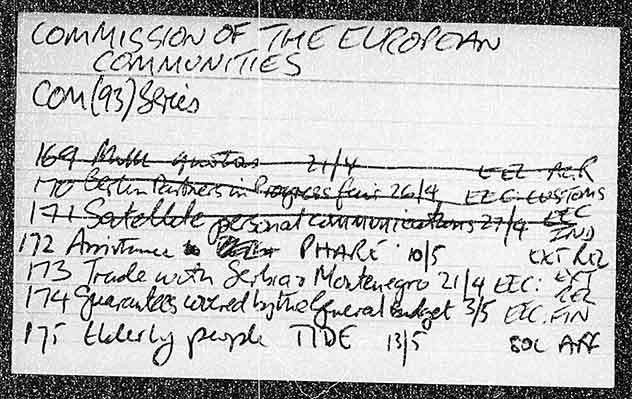 COMMISSION OF THE EUROPEAN
COMMUNITIES
COM(93) Series
169 Milk quotas 21/4 EEC AGR
170 Berlin Partners in Progress fair 26/4 EEC: CUSTOMS
171 Satellite personal communications 27/4 EEC
IND
172 Assistance to PHARE 10/5 EXT REL
173 Trade with Serbia & Montenegro 21/4 EEC: EXT
REL
174 Guarantees covered by the General budget 3/5 EEC. FIN
175 Elderly people TIDE 13/5 SOC AFF